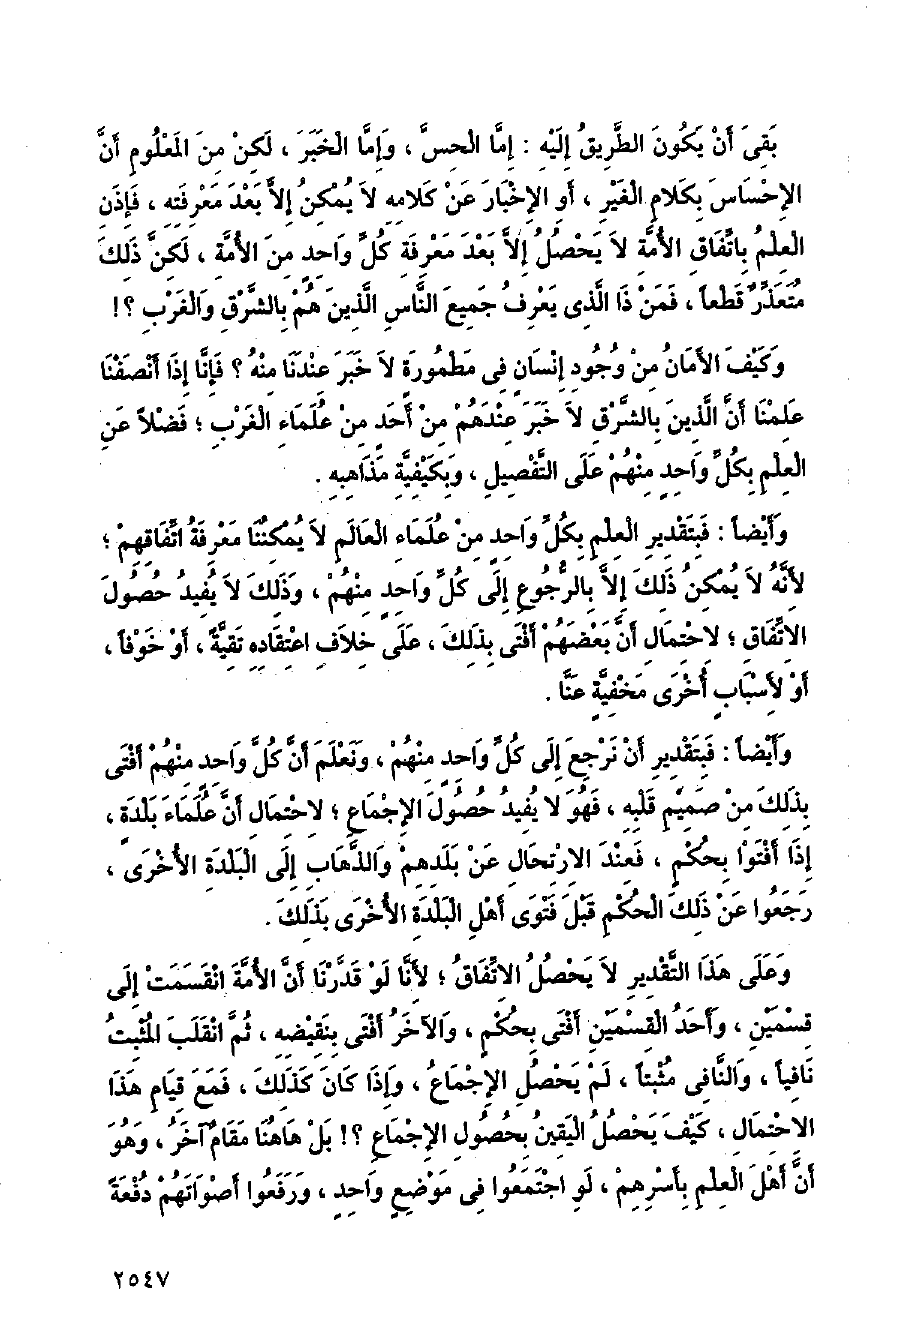 بَقِىَ أَنْ يَكُونَ الطَّرِيقُ إِلَيْهِ : إِمَّا الْحِسَّ ، وَإِمَّا الْخَبَرَ ، لَكِنْ مِنَ الْمَعْلُومِ أَنَّ
الإِحْسَاسَ بِكَلَامِ الْغَيْرِ ، أَوِ الإِخْبَارَ عَنْ كَلامِهِ لاَ يُمْكِنُ إِلاَّ بَعْدَ مَعْرِفَتِهِ ، فَإِذَنِ
الْعِلْمُ بِاتِّفَاقِ الأُمَّةِ لاَ يَحْصُلُ إِلاَّ بَعْدَ مَعْرِفَةِ كُلِّ وَاحِدٍ مِنَ الأُمَّةِ ، لَكِنَّ ذَلِكَ
مُتَعَذِّرٌ قَطْعاً ، فَمَنْ ذَا الَّذِى يَعْرِفُ جَمِيعَ النَّاسِ الَّذِينَ هُمْ بِالشَّرْقِ وَالْغَرْبِ ؟!
وَكَيْفَ الأَمَانُ مِنْ وُجُودِ إِنْسَانٍ فِى مَطْمُورَةٍ لاَ خَبَرَ عِنْدَنَا مِنْهُ ؟ فَإِنَّا إِذَا أَنْصَفْنَا
عَلِمْنَا أَنَّ الَّذِينَ بِالشَّرْقِ لاَ خَبَرَ عِنْدَهُمْ مِنْ أَحَدٍ مِنْ عُلَمَاءِ الْغَرْبِ ؛ فَضْلاً عَنِ
الْعِلْمِ بِكُلِّ وَاحِدٍ مِنْهُمْ عَلَى التَّفْصِيلِ ، وَبِكَيْفِيَّةِ مَذَاهِبِهِ .
وَأَيْضاً : فَبِتَقْدِيرِ الْعِلْمِ بِكُلِّ وَاحِدٍ مِنْ عُلَمَاءِ الْعَالَمِ لاَ يُمْكِنُنَا مَعْرِفَةُ اتِّفَاقِهِمْ ؛
لأَنَّهُ لاَ يُمْكِنُ ذَلِكَ إِلاَّ بِالرُّجُوعِ إِلَى كُلِّ وَاحِدٍ مِنْهُمْ ، وَذَلِكَ لاَ يُفِيدُ حُصُولَ
الاتِّفَاقِ ؛ لاحْتِمَالِ أَنَّ بَعْضَهُمْ أَفْتَى بِذَلِكَ ، عَلَى خِلاَفِ اعْتِقَادِهِ تَقِيَّةً ، أَوْ خَوْفاً ،
أَوْ لأَسْبَابٍ أُخْرَى مَخْفِيَّةٍ عَنَّا .
وَأَيْضاً : فَبِتَقْدِيرِ أَنْ نَرْجِعَ إِلَى كُلِّ وَاحِدٍ مِنْهُمْ ، وَنَعْلَمَ أَنَّ كُلَّ وَاحِدٍ مِنْهُمْ أَفْتَى
بِذَلِكَ مِنْ صَمِيمِ قَلْبِهِ ، فَهُوَ لا يُفِيدُ حُصُولَ الإِجْمَاعِ ؛ لاحْتِمَالِ أَنَّ عُلَمَاءَ بَلْدَةٍ ،
إِذَا أَفْتَوْا بِحُكْمٍ ، فَعِنْدَ الارْتِحَالِ عَنْ بَلَدِهِمْ وَالذَّهَابِ إِلَى الْبَلْدَةِ الأُخْرَى ،
رَجَعُوا عَنْ ذَلِكَ الْحُكْمِ قَبْلَ فَتْوَى أَهْلِ الْبَلْدَةِ الأُخْرَى بِذَلِكَ .
وَعَلَى هَذَا التَّقْدِيرِ لاَ يَحْصُلُ الاتِّفَاقُ ؛ لأَنَّا لَوْ قَدَّرْنَا أَنَّ الأُمَّةَ انْقَسَمَتْ إِلَى
قِسْمَيْنِ ، وَأَحَدُ الْقِسْمَيْنِ أَفْتَى بِحُكْمٍ ، وَالآخَرُ أَفْتَى بِنَقِيضِهِ ، ثُمَّ انْقَلَبَ الْمُثْبِتُ
نَافِياً ، وَالنَّافِى مُثْبِتاً ، لَمْ يَحْصُلِ الإِجْمَاعُ ، وَإِذَا كَانَ كَذَلِكَ ، فَمَعَ قِيَامِ هَذَا
الاحْتِمَالِ ، كَيْفَ يَحْصُلُ الْيَقِينُ بِحُصُولِ الإِجْمَاعِ ؟! بَلْ هَاهُنَا مَقَامٌ آخَرُ ، وَهُوَ
أَنَّ أَهْلَ الْعِلْمِ بِأَسْرِهِمْ ، لَوِ اجْتَمَعُوا فِى مَوْضِعٍ وَاحِدٍ ، وَرَفَعُوا أَصْوَاتَهُمْ دُفْعَةً
٢٥٤٧